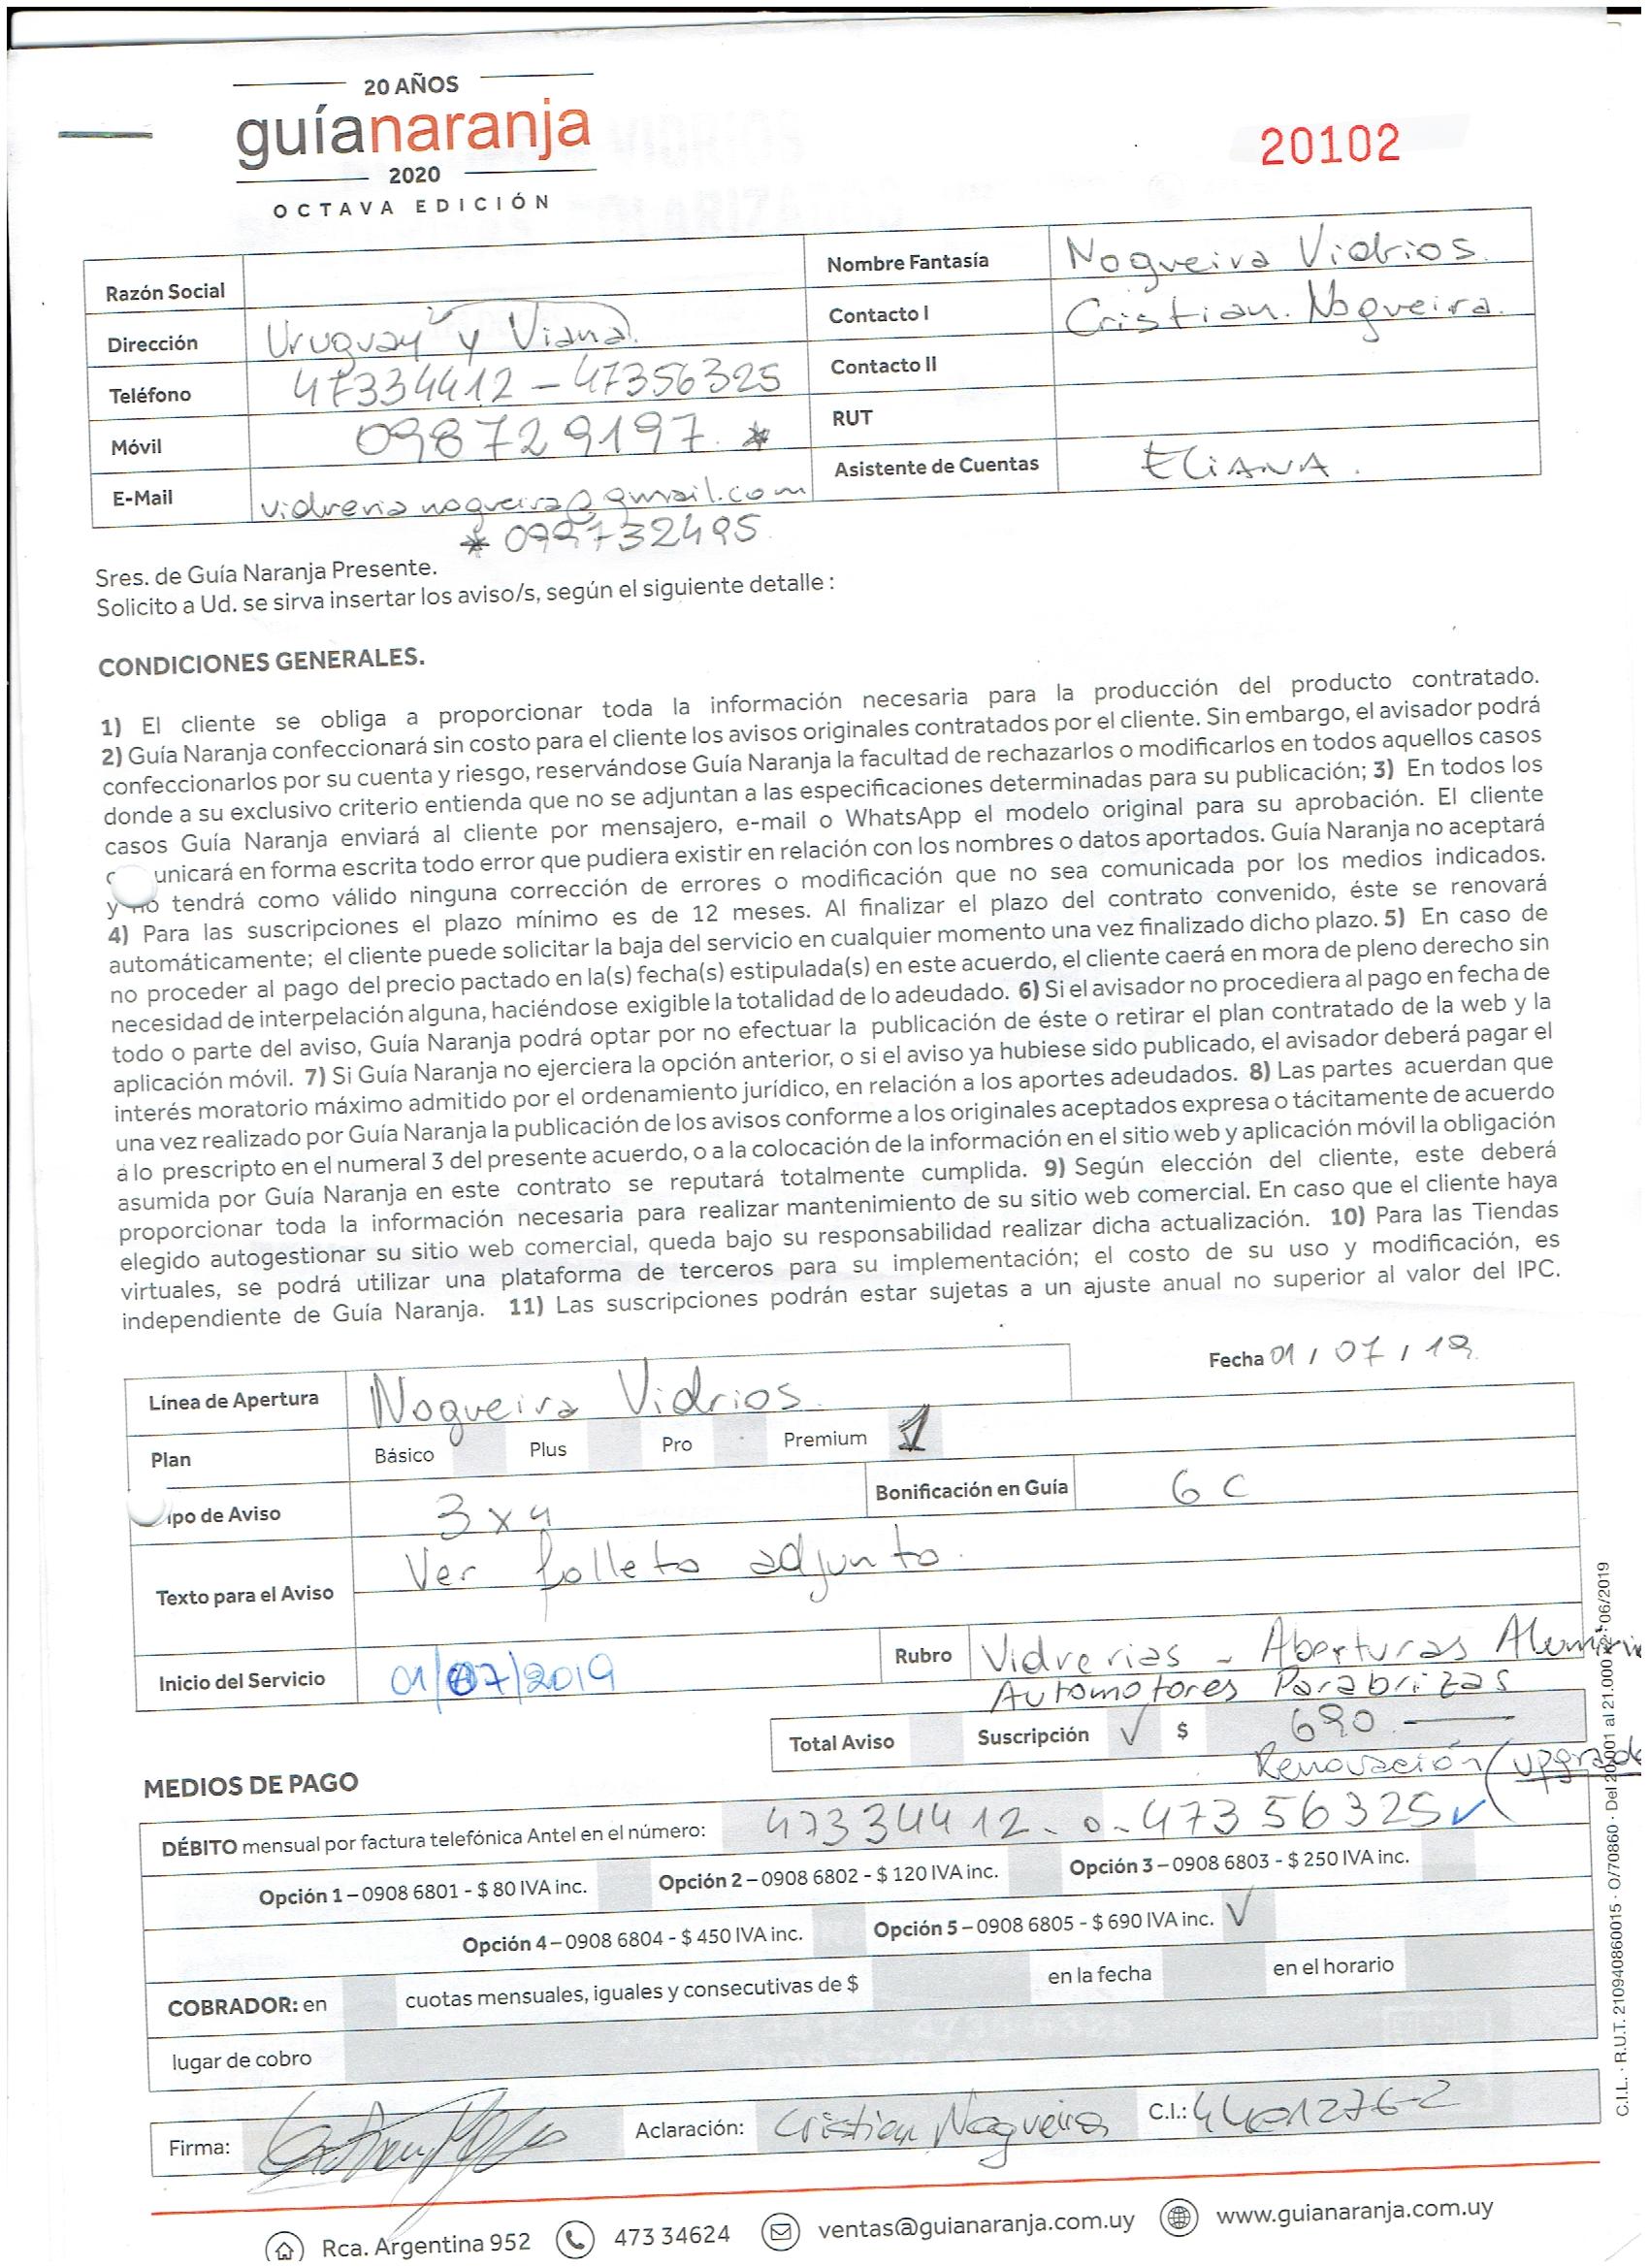 20 AÑOS
guíanaranja
2020
OCTAVA EDICIÓN
20102
Razón Social
Nombre Fantasía Nogueira Vidrios.
Dirección Uruguay y Viana
Contacto I Cristian. Nogueira.
Teléfono 47334412 - 47356325
Contacto II
Móvil 098729197. *
RUT
E-Mail vidrerianogueira@gmail.com
Asistente de Cuentas ELIANA.
* 099732495
Sres. de Guía Naranja Presente.
Solicito a Ud. se sirva insertar los aviso/s, según el siguiente detalle :
CONDICIONES GENERALES.
1) El cliente se obliga a proporcionar toda la información necesaria para la producción del producto contratado.
2) Guía Naranja confeccionará sin costo para el cliente los avisos originales contratados por el cliente. Sin embargo, el avisador podrá
confeccionarlos por su cuenta y riesgo, reservándose Guía Naranja la facultad de rechazarlos o modificarlos en todos aquellos casos
donde a su exclusivo criterio entienda que no se adjuntan a las especificaciones determinadas para su publicación; 3) En todos los
casos Guía Naranja enviará al cliente por mensajero, e-mail o WhatsApp el modelo original para su aprobación. El cliente
unicará en forma escrita todo error que pudiera existir en relación con los nombres o datos aportados. Guía Naranja no aceptará
y no tendrá como válido ninguna corrección de errores o modificación que no sea comunicada por los medios indicados.
4) Para las suscripciones el plazo mínimo es de 12 meses. Al finalizar el plazo del contrato convenido, éste se renovará
automáticamente; el cliente puede solicitar la baja del servicio en cualquier momento una vez finalizado dicho plazo. 5) En caso de
no proceder al pago del precio pactado en la(s) fecha(s) estipulada(s) en este acuerdo, el cliente caerá en mora de pleno derecho sin
necesidad de interpelación alguna, haciéndose exigible la totalidad de lo adeudado. 6) Si el avisador no procediera al pago en fecha de
todo o parte del aviso, Guía Naranja podrá optar por no efectuar la publicación de éste o retirar el plan contratado de la web y la
aplicación móvil. 7) Si Guía Naranja no ejerciera la opción anterior, o si el aviso ya hubiese sido publicado, el avisador deberá pagar el
interés moratorio máximo admitido por el ordenamiento jurídico, en relación a los aportes adeudados. 8) Las partes acuerdan que
una vez realizado por Guía Naranja la publicación de los avisos conforme a los originales aceptados expresa o tácitamente de acuerdo
a lo prescripto en el numeral 3 del presente acuerdo, o a la colocación de la información en el sitio web y aplicación móvil la obligación
asumida por Guía Naranja en este contrato se reputará totalmente cumplida. 9) Según elección del cliente, este deberá
proporcionar toda la información necesaria para realizar mantenimiento de su sitio web comercial. En caso que el cliente haya
elegido autogestionar su sitio web comercial, queda bajo su responsabilidad realizar dicha actualización. 10) Para las Tiendas
virtuales, se podrá utilizar una plataforma de terceros para su implementación; el costo de su uso y modificación, es
independiente de Guía Naranja. 11) Las suscripciones podrán estar sujetas a un ajuste anual no superior al valor del IPC.
Fecha 01 / 07 / 19
Línea de Apertura Nogueira Vidrios.
Plan Básico Plus Pro Premium 1
ipo de Aviso 3 x 4 Bonificación en Guía 6 c
Texto para el Aviso Ver folleto adjunto.
Inicio del Servicio 01/07/2019 Rubro Vidrerias - Aberturas Alumini
Automotores Parabrizas
Total Aviso Suscripción ✓ $ 690.—
Renovación (upgrade
MEDIOS DE PAGO
DÉBITO mensual por factura telefónica Antel en el número: 47334412 - o - 47356325 ✓
Opción 1 – 0908 6801 - $ 80 IVA inc. Opción 2 – 0908 6802 - $ 120 IVA inc. Opción 3 – 0908 6803 - $ 250 IVA inc.
Opción 4 – 0908 6804 - $ 450 IVA inc. Opción 5 – 0908 6805 - $ 690 IVA inc. ✓
COBRADOR: en cuotas mensuales, iguales y consecutivas de $ en la fecha en el horario
lugar de cobro
Firma: Aclaración: Cristian Nogueira C.I.: 4401276-2
Rca. Argentina 952 473 34624 ventas@guianaranja.com.uy www.guianaranja.com.uy
C.I.L. · R.U.T. 210940860015 · O/70860 · Del 20.001 al 21.000 06/2019